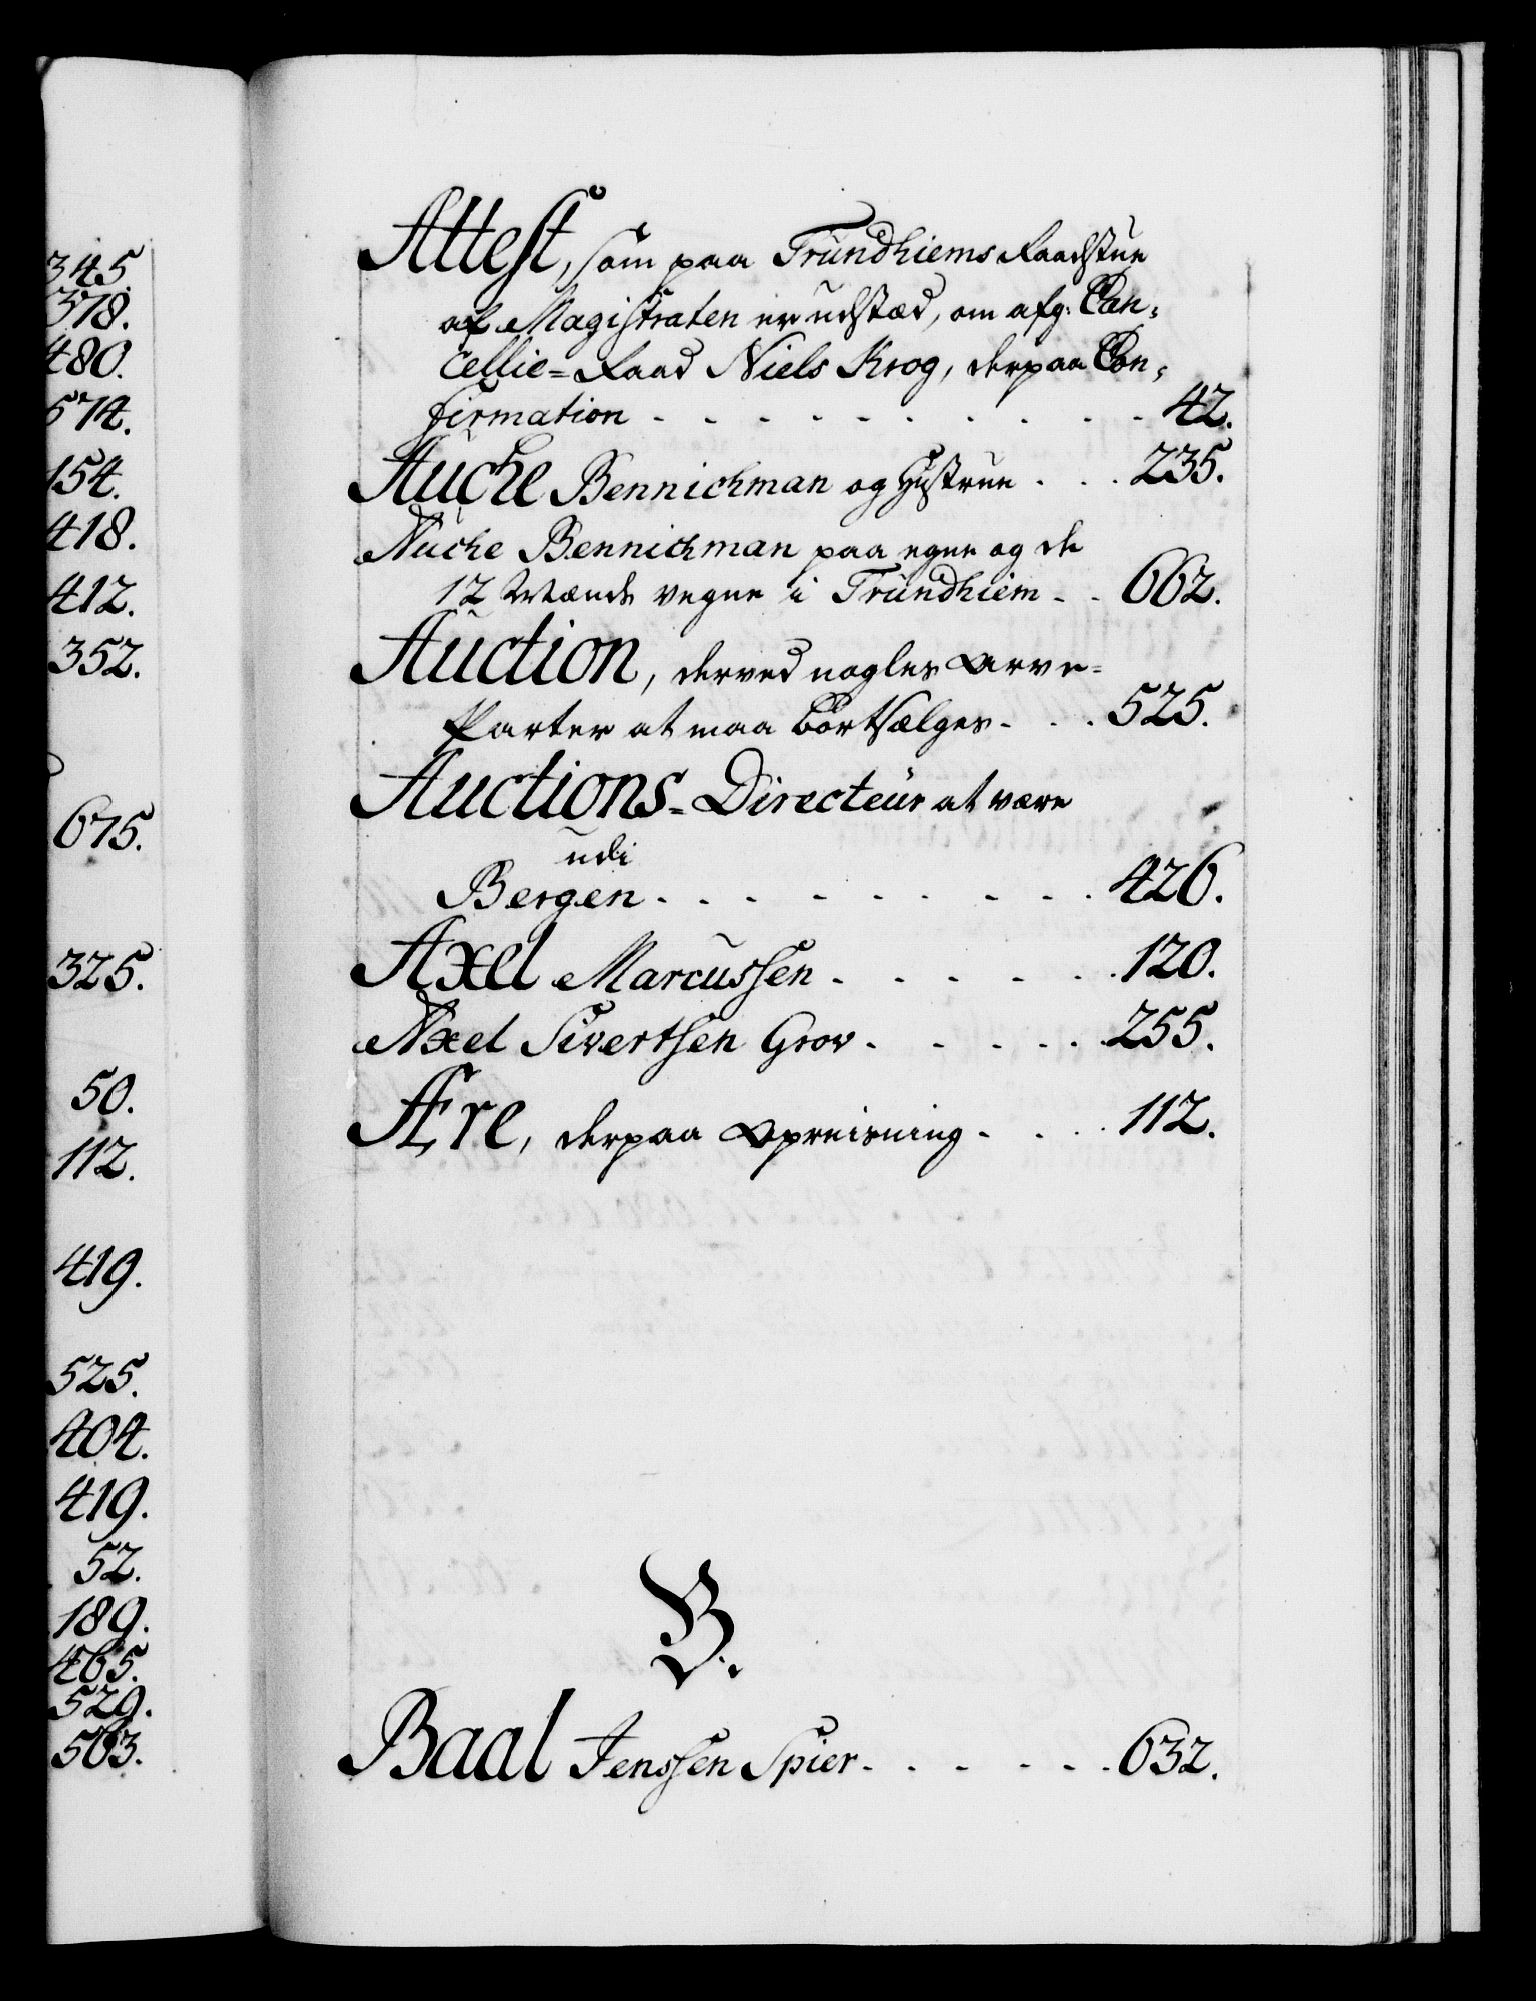 345.
378.
480.
574.
154.
418.
412.
352.
675.
325.
50.
112.
419.
525.
404.
419.
52.
189.
465.
529.
503.
Attest, som paa Trundhiems Raadstue
af Magistraten er udstæd, om afg: Can-
cellie-Raad Niels Krog, derpaa Con-
firmation - - - - - - - - - - 42.
Auche Bennichman og Hustrue - - - 235.
Auche Bennichman paa egne og de
12 Mænds vegne i Trundhiem - - 662.
Auction, derved nogles Arve-
Parter at maa bortsælges - - - 525.
Auctions-Directeur at være
udi
Bergen - - - - - - - - - 426.
Axel Marcussen - - - - - - 120.
Axel Sivertsen Grov - - - - - 255.
Ære, derpaa Opreisning - - - - 112.
B.
Baal Jenssen Spier - - - - - - 632.